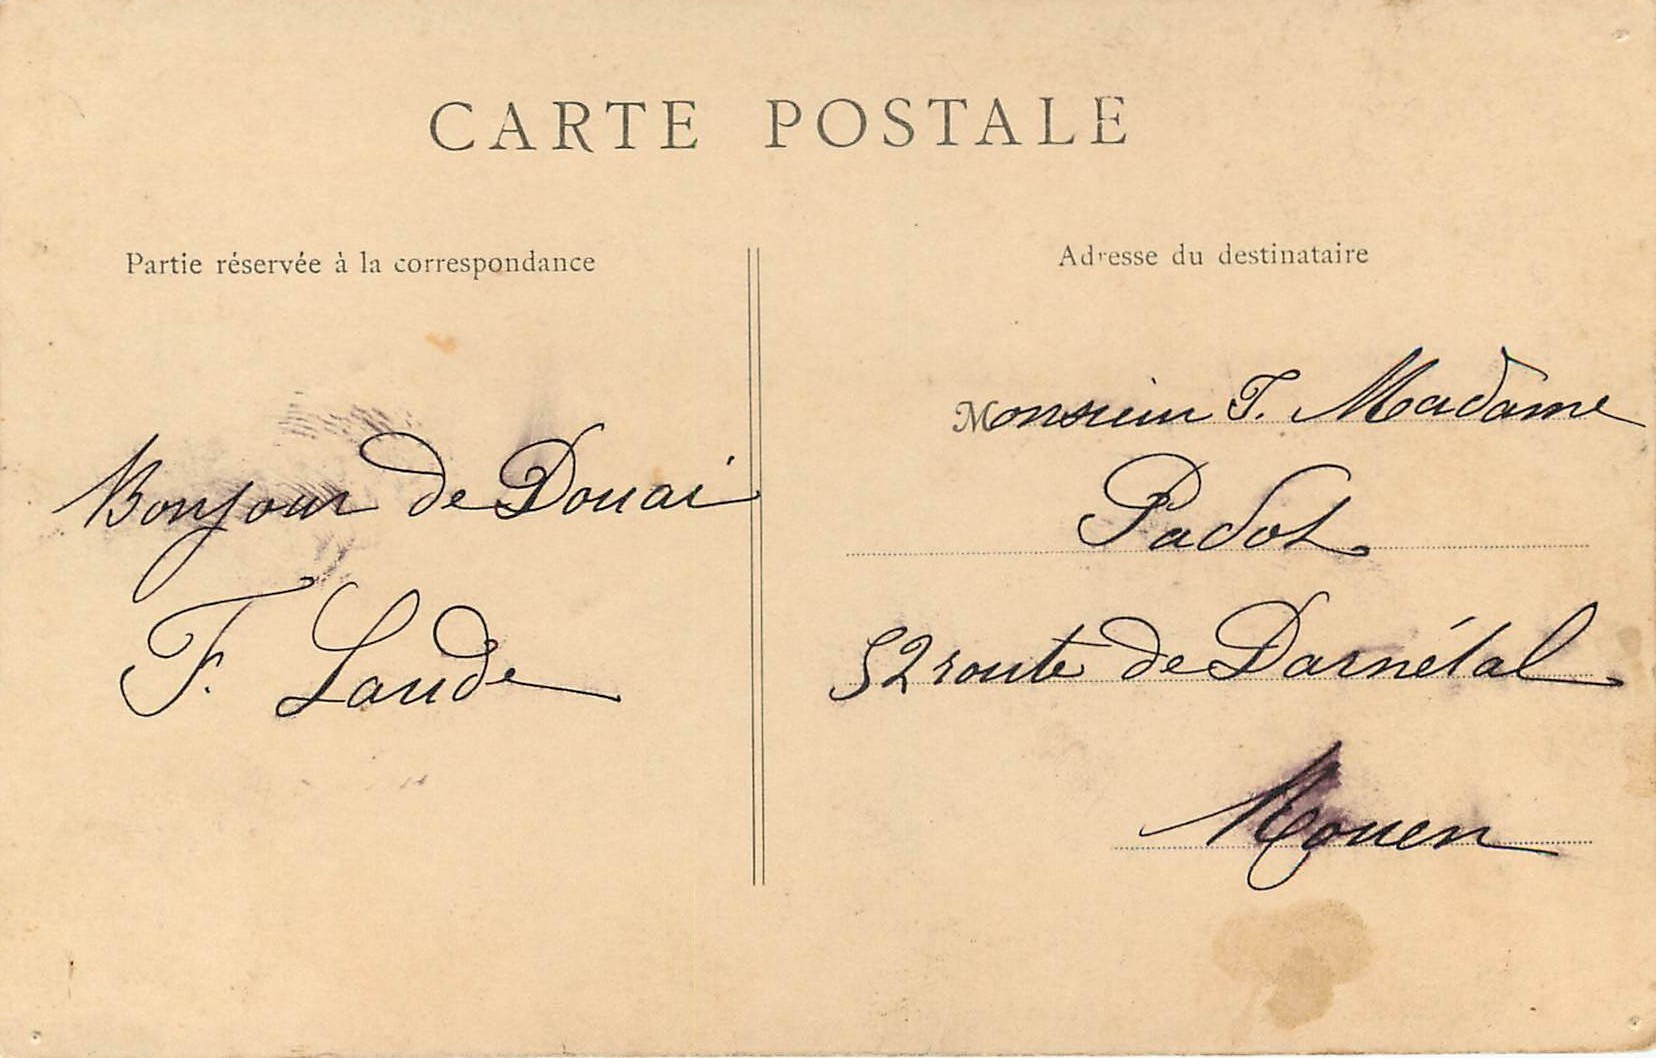 CARTE POSTALE
Partie réservée à la correspondance
Adresse du destinataire
Bonjour de Douai
F. Laude
Monsieur T. Madame
Padot
52 route de Darnétal
Rouen